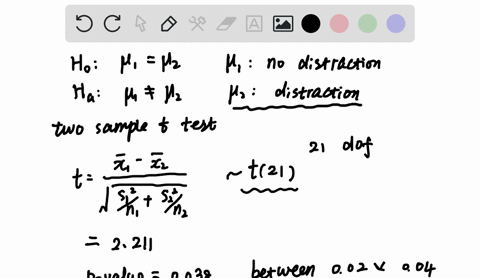 H₀: μ₁ = μ₂ μ₁: no distraction
Hₐ: μ₁ ≠ μ₂ μ₂: distraction
two sample t test
21 dof
t = (x̄₁ - x̄₂) / √(S₁²/n₁ + S₂²/n₂) ~ t(21)
= 2.211
p-value = 0.038 between 0.02 & 0.04